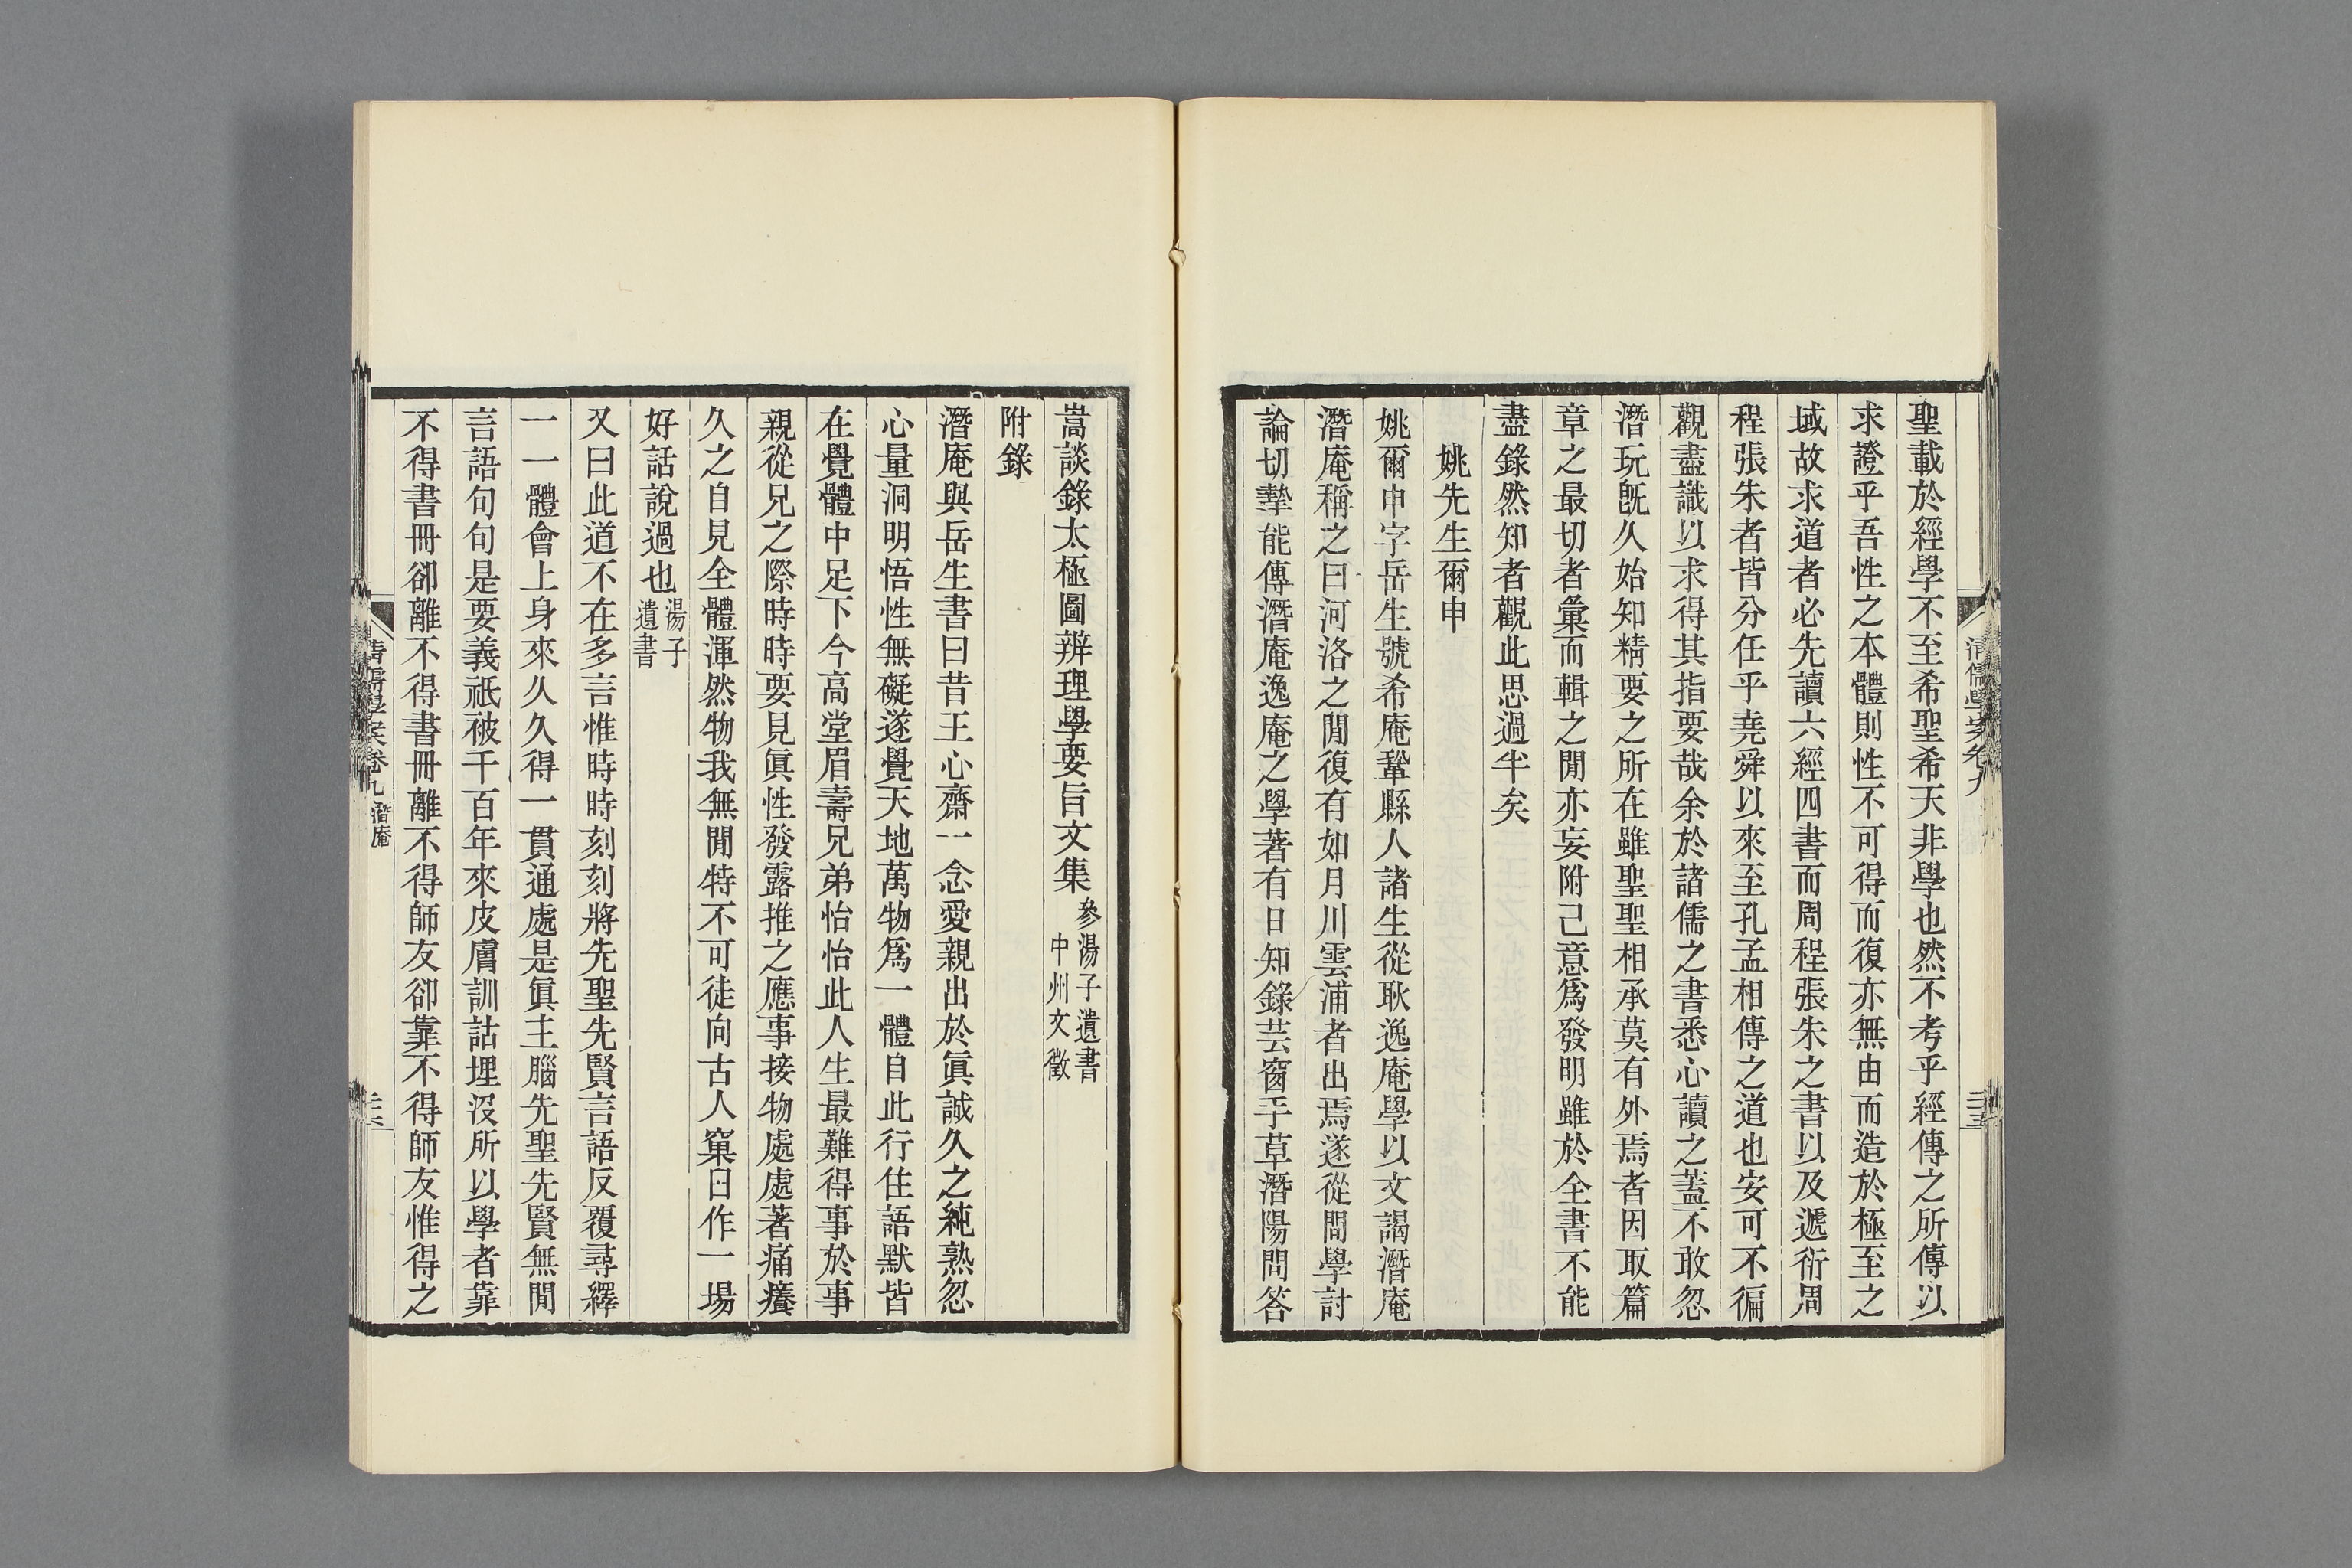 聖載於經學不至希聖希天非學也然不考乎經傳之所傳以
求證乎吾性之本體則性不可得而復亦無由而造於極至之
域故求道者必先讀六經四書而周程張朱之書以及遞衍周
程張朱者皆分任乎堯舜以來至孔孟相傳之道也安可不徧
觀盡識以求得其指要哉余於諸儒之書悉心讀之蓋不敢忽
潛玩旣久始知精要之所在雖聖聖相承莫有外焉者因取篇
章之最切者彙而輯之閒亦妄附己意爲發明雖於全書不能
盡錄然知者觀此思過半矣
姚先生爾申
姚爾申字岳生號希庵鞏縣人諸生從耿逸庵學以文謁潛庵
潛庵稱之曰河洛之閒復有如月川雲浦者出焉遂從問學討
論切摯能傳潛庵逸庵之學著有日知錄芸窗手草潛陽問答
清儒學案卷九
嵩談錄太極圖辨理學要旨文集
參湯子遺書
中州文徵
附錄
潛庵與岳生書曰昔王心齋一念愛親出於眞誠久之純熟忽
心量洞明悟性無礙遂覺天地萬物爲一體自此行住語默皆
在覺體中足下今高堂眉壽兄弟怡怡此人生最難得事於事
親從兄之際時時要見眞性發露推之應事接物處處著痛癢
久之自見全體渾然物我無閒特不可徒向古人窠臼作一場
好話說過也
湯子
遺書
又曰此道不在多言惟時時刻刻將先聖先賢言語反覆尋繹
一一體會上身來久久得一貫通處是眞主腦先聖先賢無閒
言語句句是要義祇被千百年來皮膚訓詁埋沒所以學者靠
不得書冊卻離不得書冊離不得師友卻靠不得師友惟得之
清儒學案卷九 潛庵